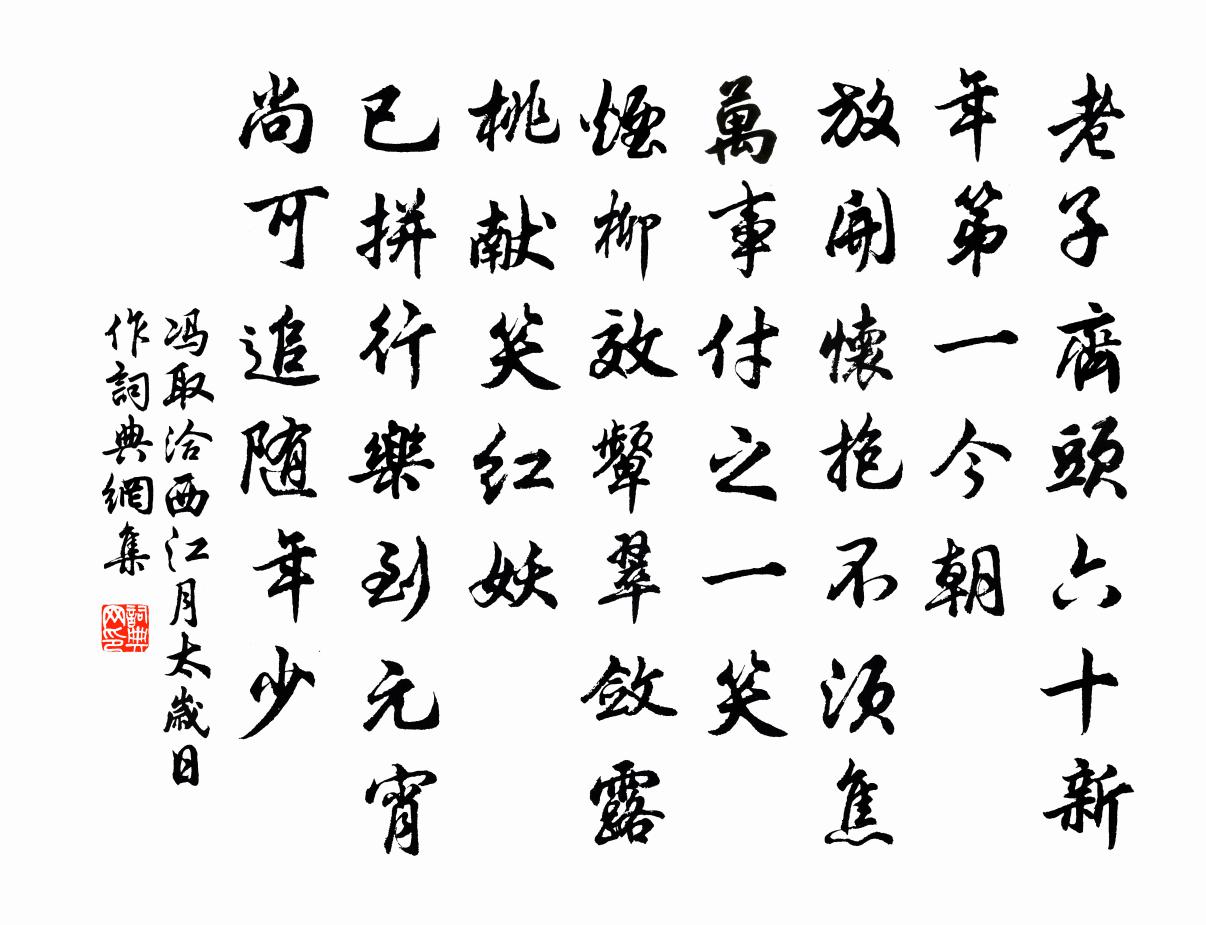 老子齊頭六十新
年第一今朝
放開懷抱不須焦
萬事付之一笑
煙柳效顰翠斂露
桃献笑红妖
已拼行樂到元宵
尚可追随年少
冯取洽西江月太歲日
作詞典網集
詞典
网印